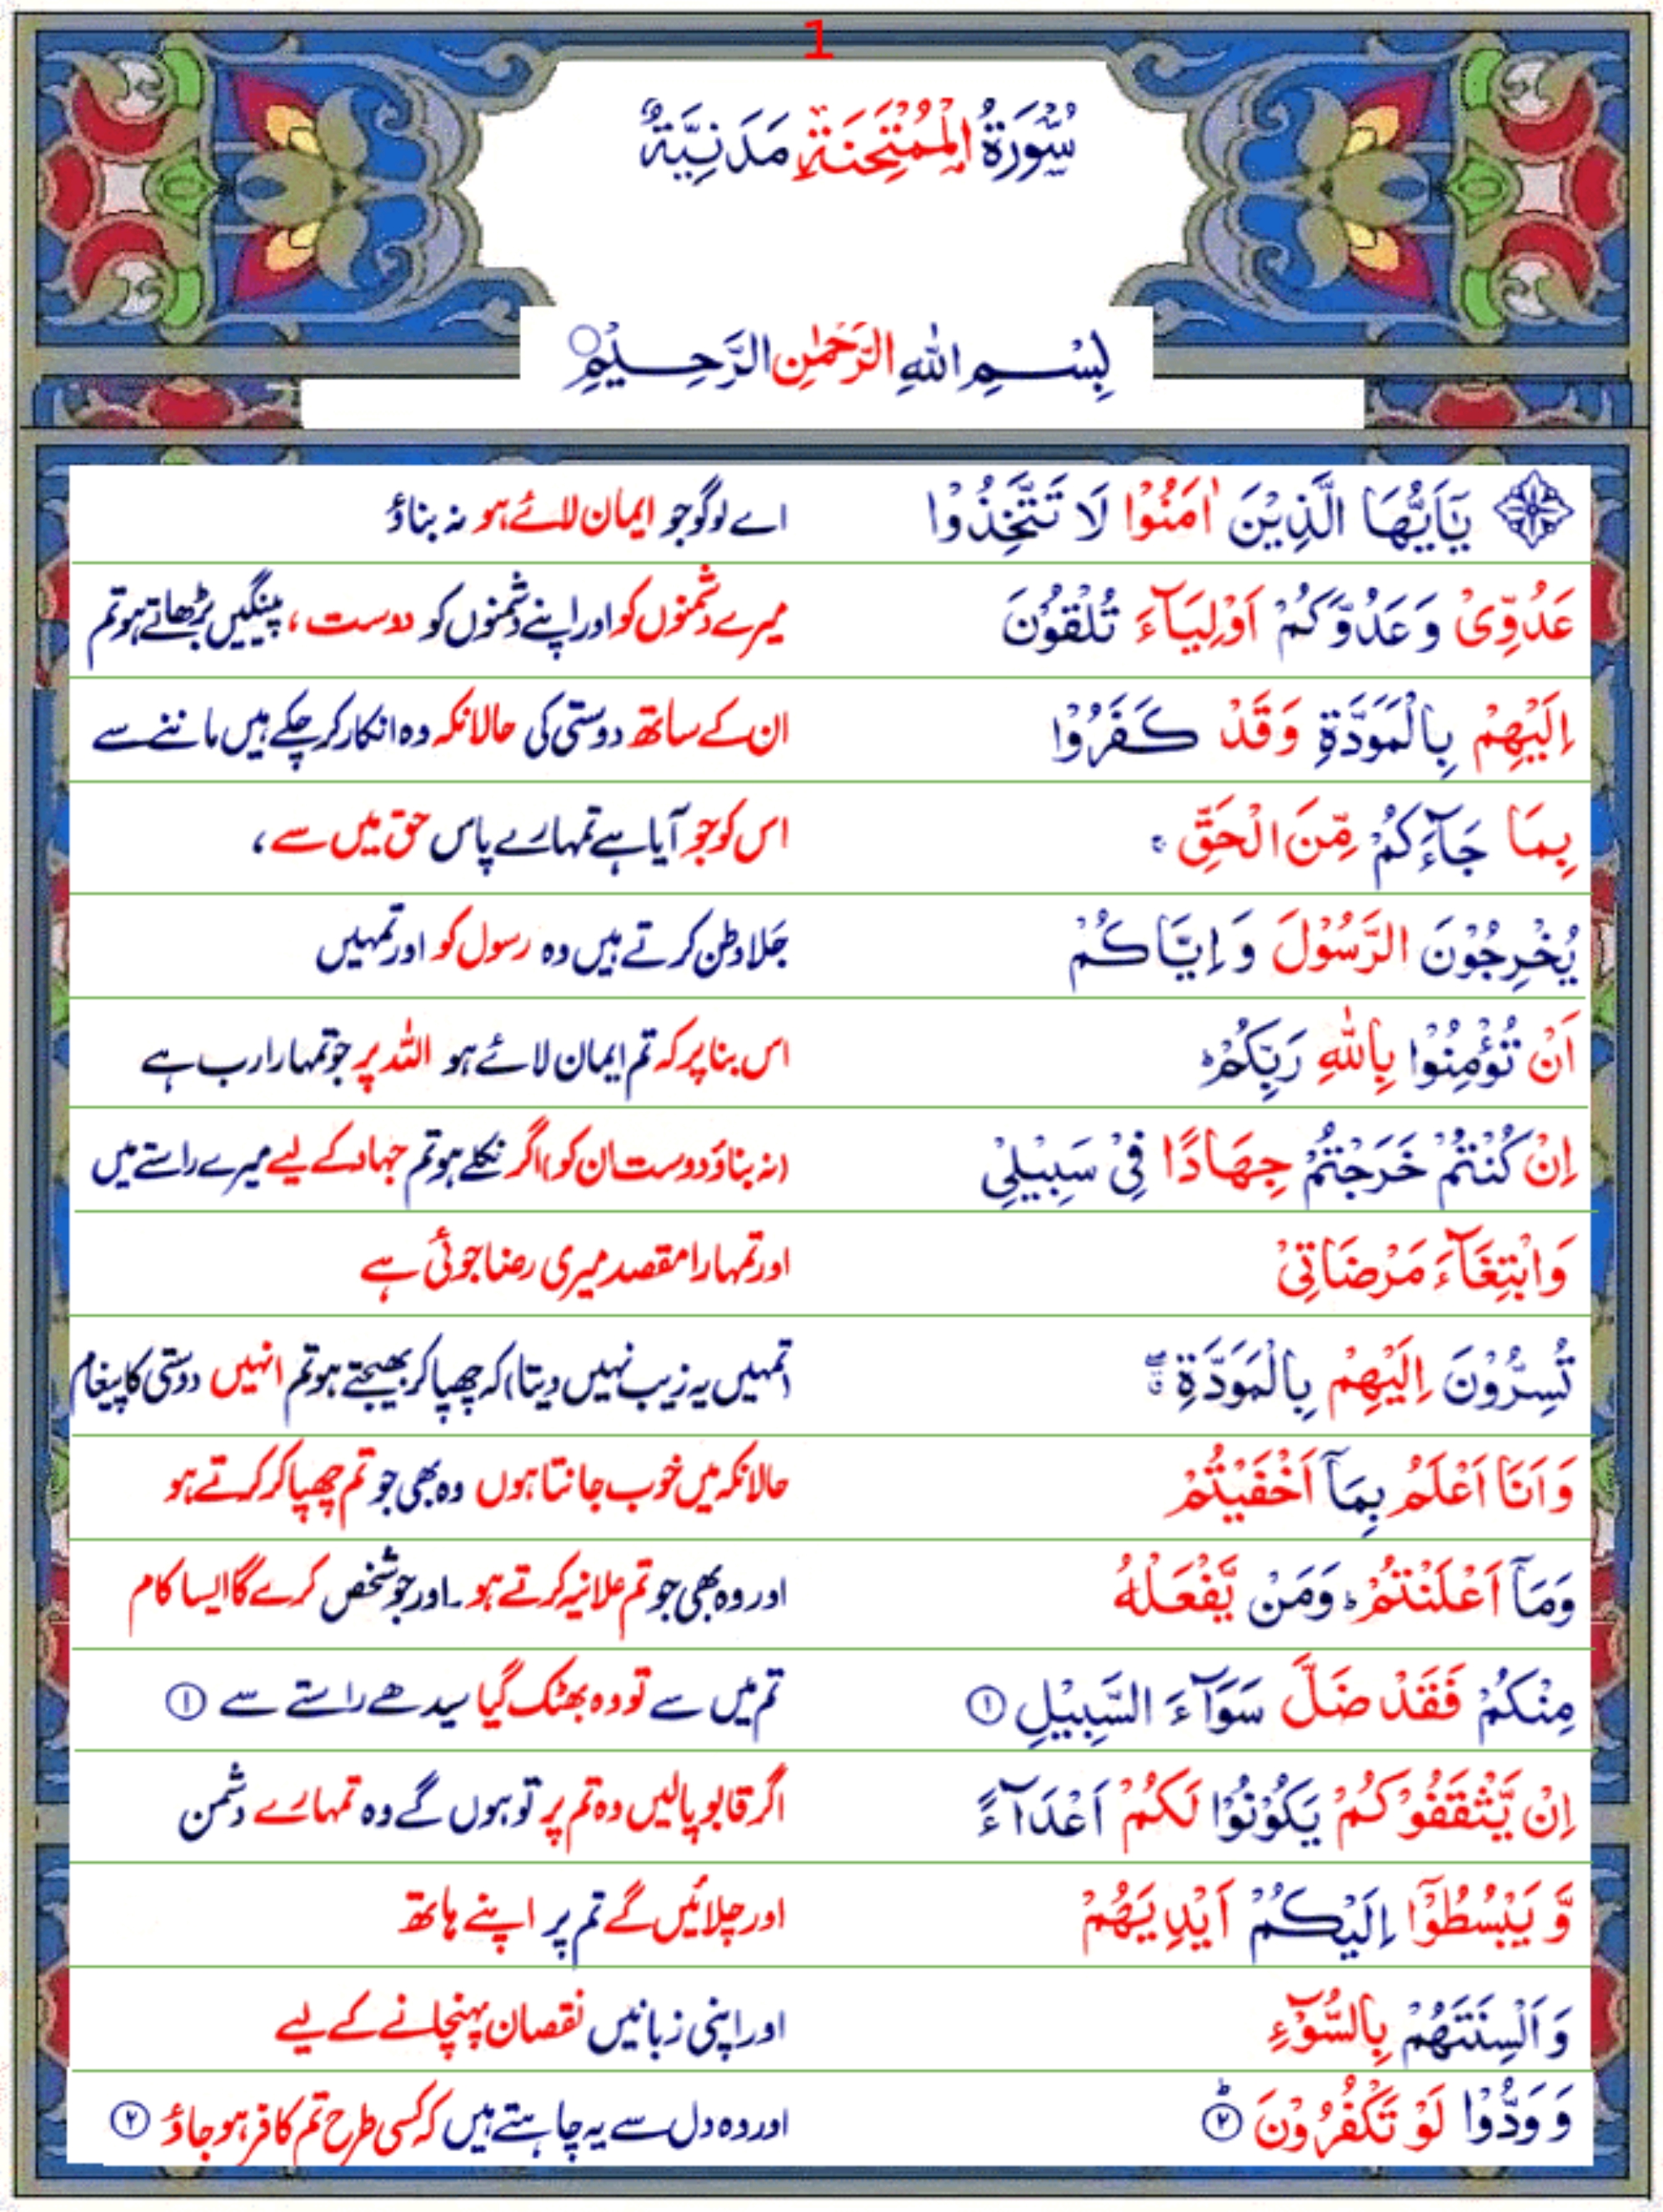 1
سُوْرَةُ الْمُمْتَحِنَةِ مَدَنِيَّةٌ
بِسْمِ اللّٰهِ الرَّحْمٰنِ الرَّحِيْمِ
يٰۤاَيُّهَا الَّذِيْنَ اٰمَنُوْا لَا تَتَّخِذُوْا اے لوگو جو ایمان لائے ہو نہ بناؤ
عَدُوِّىْ وَعَدُوَّكُمْ اَوْلِيَآءَ تُلْقُوْنَ میرے دشمنوں کو اور اپنے دشمنوں کو دوست ، پینگیں بڑھاتے ہو تم
اِلَيْهِمْ بِالْمَوَدَّةِ وَقَدْ كَفَرُوْا ان کے ساتھ دوستی کی حالانکہ وہ انکار کر چکے ہیں ماننے سے
بِمَا جَآءَكُمْ مِّنَ الْحَقِّ ۚ اس کو جو آیا ہے تمہارے پاس حق میں سے ،
يُخْرِجُوْنَ الرَّسُوْلَ وَاِيَّاكُمْ جلاوطن کرتے ہیں وہ رسول کو اور تمہیں
اَنْ تُؤْمِنُوْا بِاللّٰهِ رَبِّكُمْ ؕ اس بنا پر کہ تم ایمان لائے ہو اللہ پر جو تمہارا رب ہے
اِنْ كُنْتُمْ خَرَجْتُمْ جِهَادًا فِىْ سَبِيْلِىْ (نہ بناؤ دوست ان کو) اگر نکلے ہو تم جہاد کے لیے میرے راستے میں
وَابْتِغَآءَ مَرْضَاتِىْ اور تمہارا مقصد میری رضا جوئی ہے
تُسِرُّوْنَ اِلَيْهِمْ بِالْمَوَدَّةِ ۖ ق (تمہیں یہ زیب نہیں دیتا) کہ چھپا کر بھیجتے ہو تم انہیں دوستی کا پیغام
وَاَنَا اَعْلَمُ بِمَاۤ اَخْفَيْتُمْ حالانکہ میں خوب جانتا ہوں وہ بھی جو تم چھپا کر کرتے ہو
وَمَاۤ اَعْلَنْتُمْ ؕ وَمَنْ يَّفْعَلْهُ اور وہ بھی جو تم علانیہ کرتے ہو ۔ اور جو شخص کرے گا ایسا کام
مِنْكُمْ فَقَدْ ضَلَّ سَوَآءَ السَّبِيْلِ ۱ تم میں سے تو وہ بھٹک گیا سیدھے راستے سے ۱
اِنْ يَّثْقَفُوْكُمْ يَكُوْنُوْا لَكُمْ اَعْدَآءً اگر قابو پالیں وہ تم پر تو ہوں گے وہ تمہارے دشمن
وَّيَبْسُطُوْۤا اِلَيْكُمْ اَيْدِيَهُمْ اور چلائیں گے تم پر اپنے ہاتھ
وَاَلْسِنَتَهُمْ بِالسُّوْٓءِ اور اپنی زبانیں نقصان پہنچانے کے لیے
وَوَدُّوْا لَوْ تَكْفُرُوْنَ ؕ ۲ اور وہ دل سے یہ چاہتے ہیں کہ کسی طرح تم کافر ہو جاؤ ۲